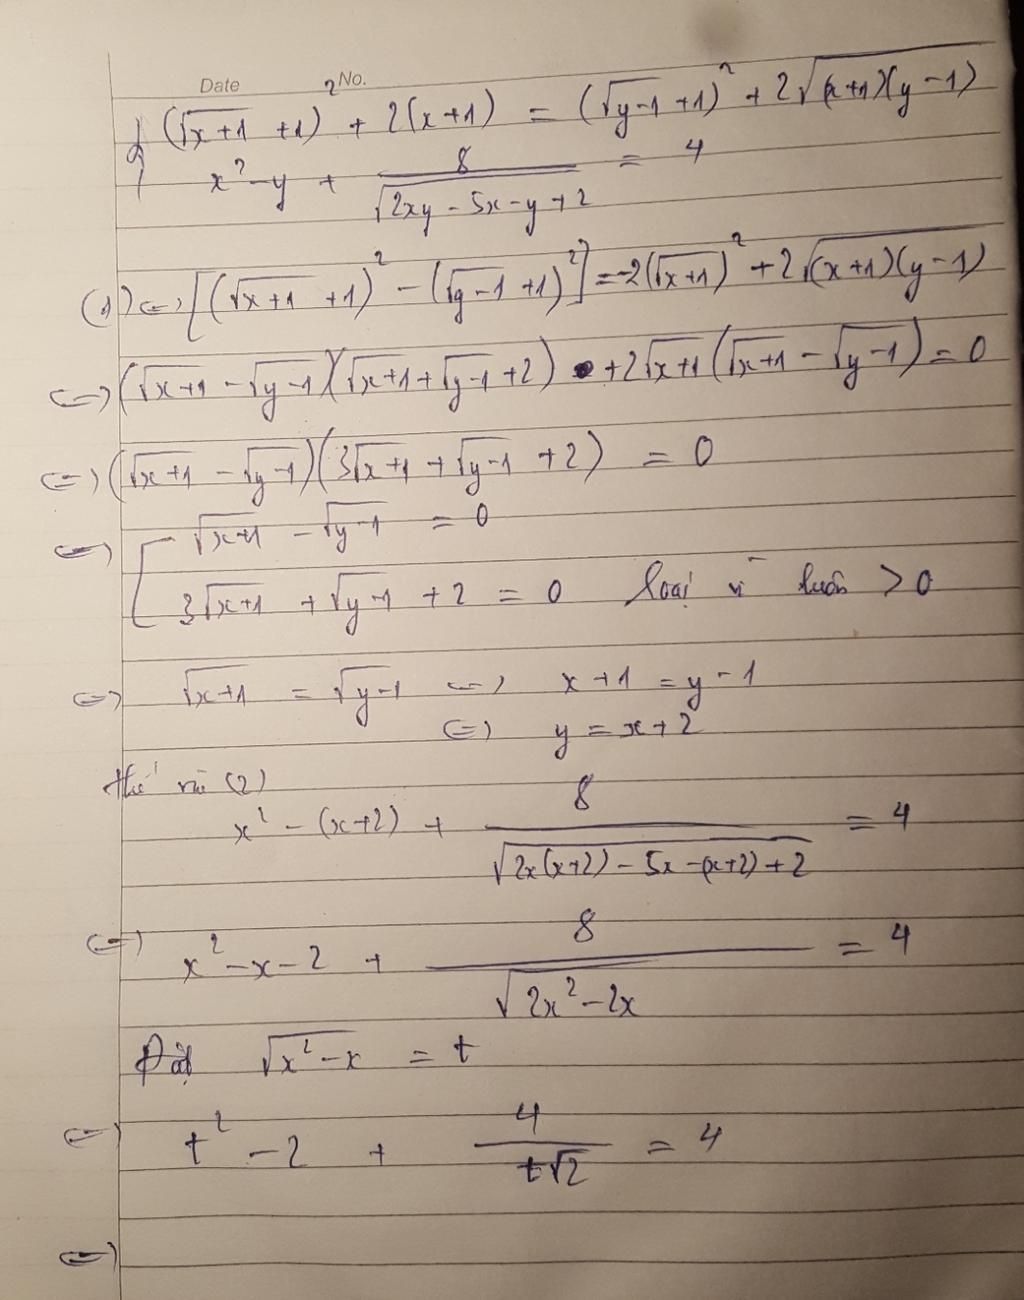 Date No.
{ (√(x+1) + 1)² + 2(x+1) = (√(y-1) + 1)² + 2√((x+1)(y-1))
x² - y + 8/√(2xy - 5x - y + 2) = 4
(1) <=> [(√(x+1) + 1)² - (√(y-1) + 1)²] = -2(√(x+1))² + 2√((x+1)(y-1))
<=> (√(x+1) - √(y-1))(√(x+1) + √(y-1) + 2) + 2√(x+1)(√(x+1) - √(y-1)) = 0
<=> (√(x+1) - √(y-1))(3√(x+1) + √(y-1) + 2) = 0
<=> [ √(x+1) - √(y-1) = 0
3√(x+1) + √(y-1) + 2 = 0 loại vì luôn > 0
<=> √(x+1) = √(y-1) <=> x + 1 = y - 1
<=> y = x + 2
thế vào (2)
x² - (x+2) + 8/√(2x(x+2) - 5x - (x+2) + 2) = 4
<=> x² - x - 2 + 8/√(2x² - 2x) = 4
Đặt √(x² - x) = t
<=> t² - 2 + 4/(t√2) = 4
<=>